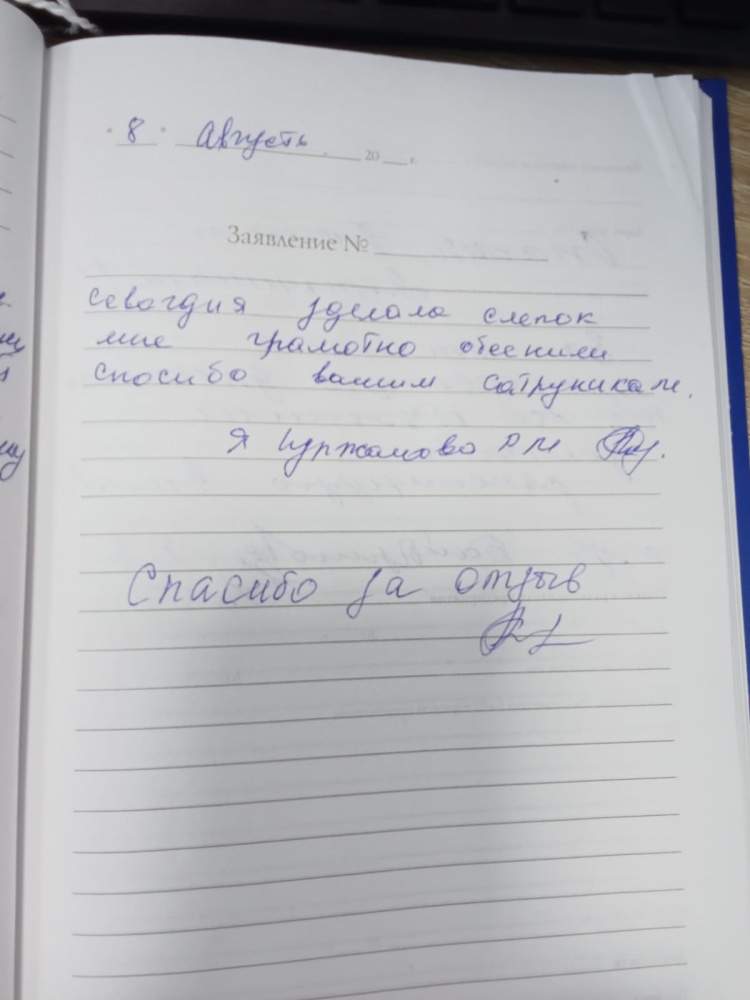 " 8 " Августь 20 г.
Заявление №
севогдня зделала слепок
мне грамотно обеснили
спосибо вашим сатруникам.
я Нуржанова РМ
Спасибо за отзыв